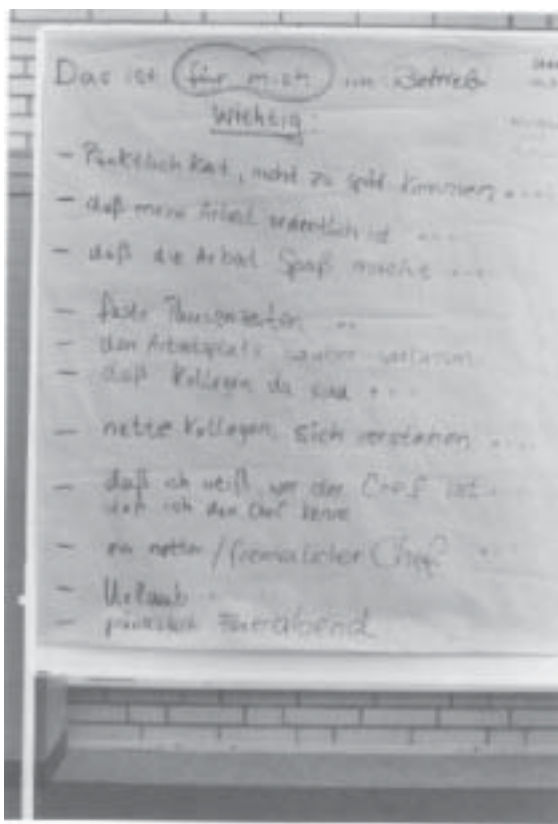 Das ist für mich im Betrieb
Wichtig:
- Pünktlichkeit, nicht zu spät kommen ....
- daß meine Arbeit ordentlich ist ....
- daß die Arbeit Spaß macht ....
- feste Pausenzeiten ..
- den Arbeitsplatz sauber verlassen
- daß Kollegen da sind ...
- nette Kollegen, sich verstehen ....
- daß ich weiß, wer der Chef ist
daß ich den Chef kenne
- ein netter / freundlicher Chef
- Urlaub
- pünktlich Feierabend